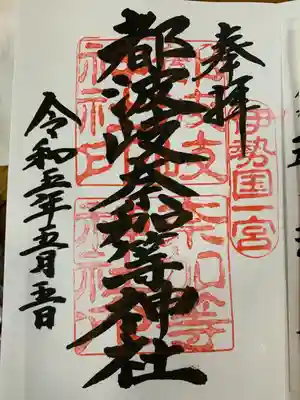 奉拝
伊勢国一宮
都波岐奈加等神社
令和五年五月五日